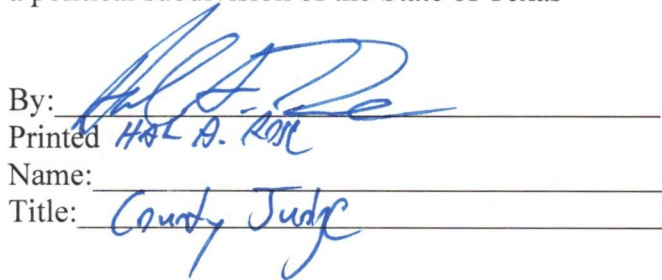 a political subdivision of the State of Texas
By:
Printed HAL A. ROSE
Name:
Title: County Judge